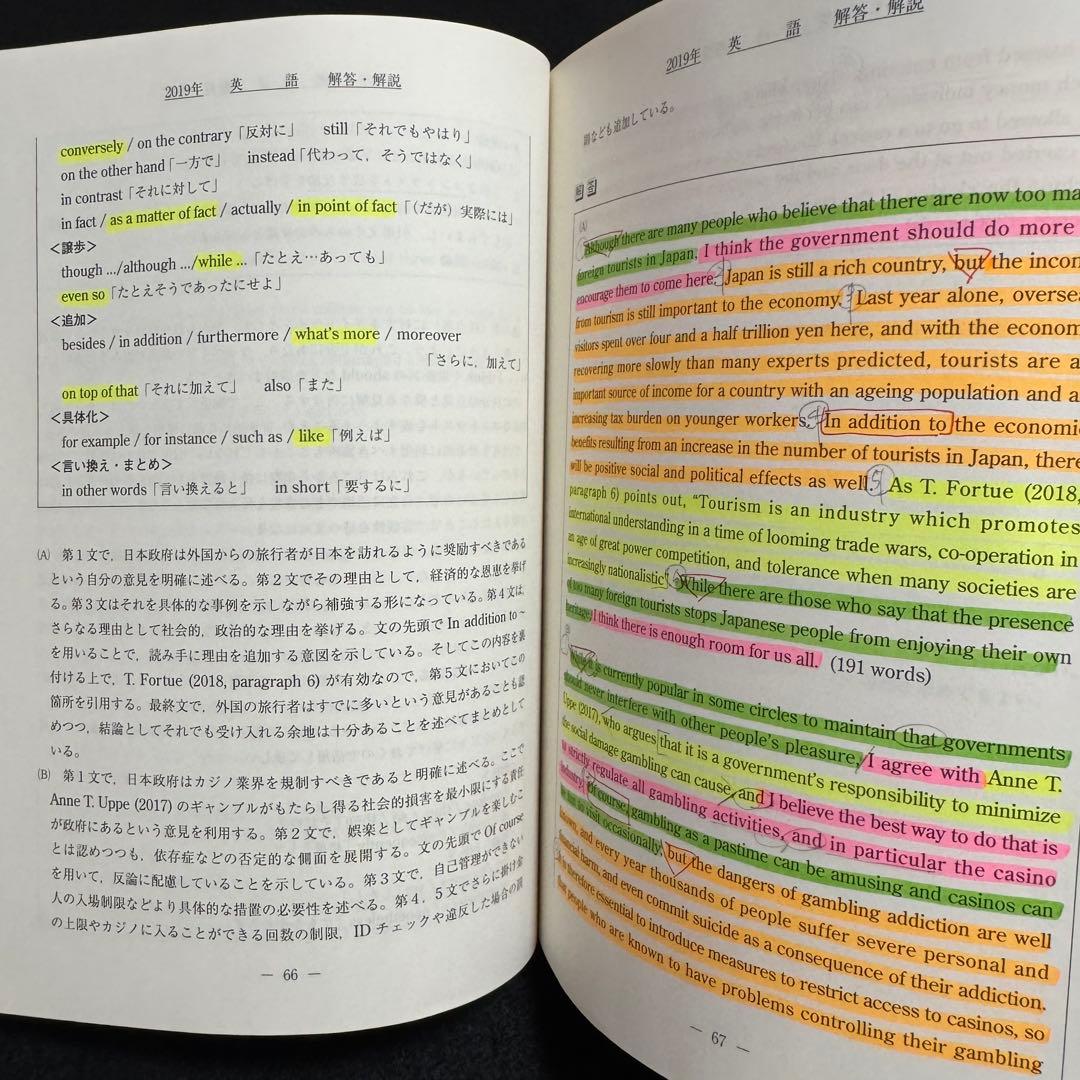 2019年 英 語 解答・解説
conversely / on the contrary「反対に」 still「それでもやはり」
on the other hand「一方で」 instead「代わって，そうではなく」
in contrast「それに対して」
in fact / as a matter of fact / actually / in point of fact「(だが) 実際には」
<譲歩>
though .../although .../while ...「たとえ…あっても」
even so「たとえそうであったにせよ」
<追加>
besides / in addition / furthermore / what's more / moreover
「さらに，加えて」
on top of that「それに加えて」 also「また」
<具体化>
for example / for instance / such as / like「例えば」
<言い換え・まとめ>
in other words「言い換えると」 in short「要するに」
(A) 第1文で，日本政府は外国からの旅行者が日本を訪れるように奨励すべきである
という自分の意見を明確に述べる。第2文でその理由として，経済的な恩恵を挙げ
る。第3文はそれを具体的な事例を示しながら補強する形になっている。第4文は
さらなる理由として社会的，政治的な理由を挙げる。文の先頭で In addition to ~
を用いることで，読み手に理由を追加する意図を示している。そしてこの内容を裏
付ける上で，T. Fortue (2018, paragraph 6) が有効なので，第5文においてこの
箇所を引用する。最終文で，外国の旅行者はすでに多いという意見があることも認
めつつ，結論としてそれでも受け入れる余地は十分あることを述べてまとめとして
いる。
(B) 第1文で，日本政府はカジノ業界を規制すべきであると明確に述べる。ここで
Anne T. Uppe (2017) のギャンブルがもたらし得る社会的損害を最小限にする責任
が政府にあるという意見を利用する。第2文で，娯楽としてギャンブルを楽しむこ
とは認めつつも，依存症などの否定的な側面を展開する。文の先頭で Of course
を用いて，反論に配慮していることを示している。第3文で，自己管理ができない
人の入場制限などより具体的な措置の必要性を述べる。第4，5文でさらに掛け金
の上限やカジノに入ることができる回数の制限，IDチェックや違反した場合の罰
— 66 —
2019年 英 語 解答・解説
則なども追加している。
解答
(A)
Although there are many people who believe that there are now too ma
foreign tourists in Japan, I think the government should do more
encourage them to come here. 2 Japan is still a rich country, but the incom
from tourism is still important to the economy. 3 Last year alone, oversea
visitors spent over four and a half trillion yen here, and with the econom
recovering more slowly than many experts predicted, tourists are a
important source of income for a country with an ageing population and a
increasing tax burden on younger workers. 4 In addition to the economic
benefits resulting from an increase in the number of tourists in Japan, there
will be positive social and political effects as well. 5 As T. Fortue (2018,
paragraph 6) points out, “Tourism is an industry which promotes
international understanding in a time of looming trade wars, co-operation in
an age of great power competition, and tolerance when many societies are
increasingly nationalistic. 6 While there are those who say that the presence
of too many foreign tourists stops Japanese people from enjoying their own
heritage, I think there is enough room for us all. (191 words)
While it is currently popular in some circles to maintain that governments
should never interfere with other people's pleasure, I agree with Anne T.
Uppe (2017), who argues that it is a government's responsibility to minimize
the social damage gambling can cause, and I believe the best way to do that is
to strictly regulate all gambling activities, and in particular the casino
industry. Of course, gambling as a pastime can be amusing and casinos can
be fun to visit occasionally, but the dangers of gambling addiction are well
known, and every year thousands of people suffer severe personal and
financial harm, and even commit suicide as a consequence of their addiction.
It is therefore essential to introduce measures to restrict access to casinos, so
that people who are known to have problems controlling their gambling
— 67 —